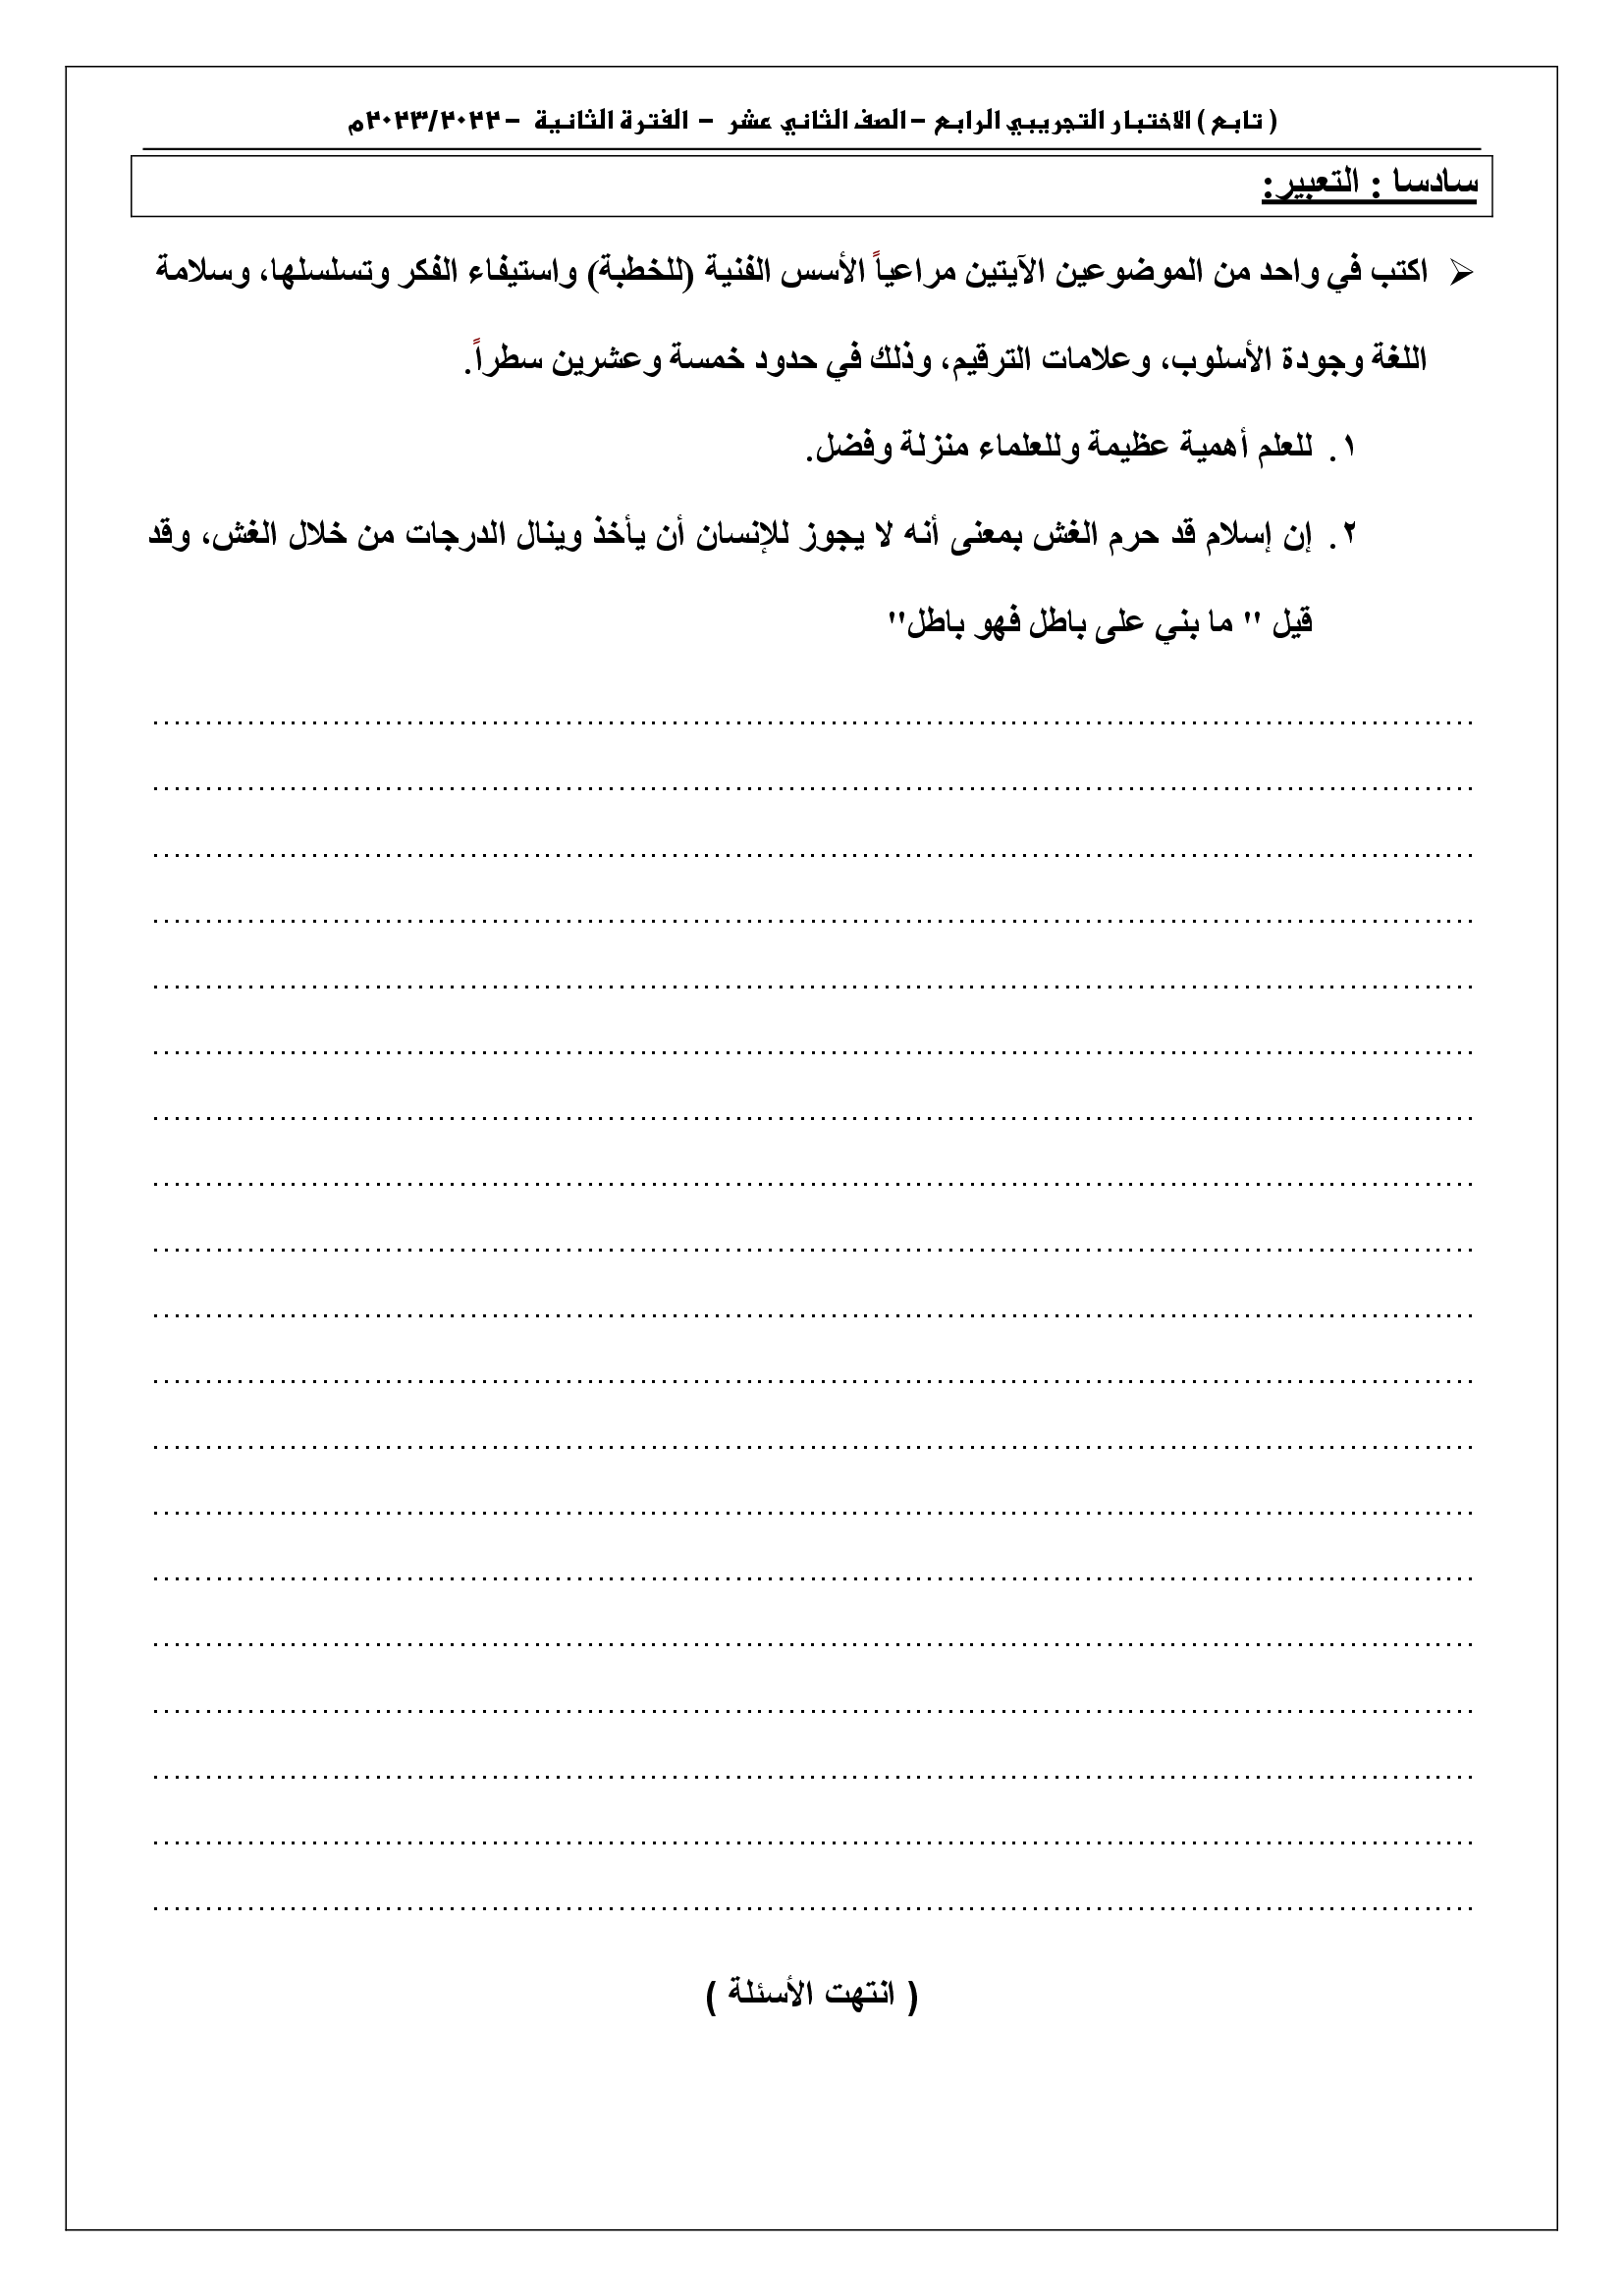 ( تابع ) الاختبار التجريبي الرابع – الصف الثاني عشر – الفترة الثانية – ٢٠٢٣/٢٠٢٢م
سادسا : التعبير:
➢ اكتب في واحد من الموضوعين الآيتين مراعياً الأسس الفنية (للخطبة) واستيفاء الفكر وتسلسلها، وسلامة
اللغة وجودة الأسلوب، وعلامات الترقيم، وذلك في حدود خمسة وعشرين سطراً.
١. للعلم أهمية عظيمة وللعلماء منزلة وفضل.
٢. إن إسلام قد حرم الغش بمعنى أنه لا يجوز للإنسان أن يأخذ وينال الدرجات من خلال الغش، وقد
قيل " ما بني على باطل فهو باطل"
( انتهت الأسئلة )